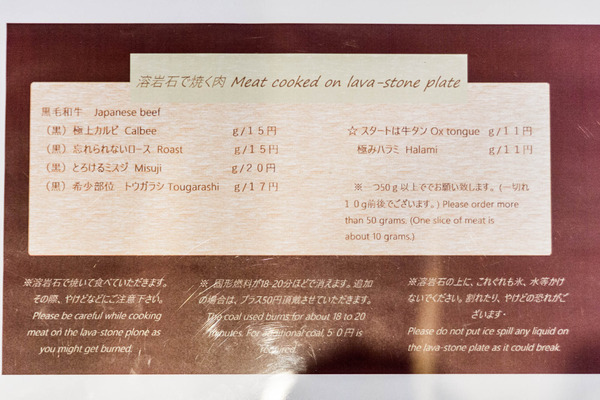 溶岩石で焼く肉 Meat cooked on lava-stone plate
黒毛和牛 Japanese beef
(黒) 極上カルビ Calbee g/15円
(黒) 忘れられないロース Roast g/15円
(黒) とろけるミスジ Misuji g/20円
(黒) 希少部位 トウガラシ Tougarashi g/17円
☆スタートは牛タン Ox tongue g/11円
極みハラミ Halami g/11円
※一つ50g以上ででお願い致します。(一切れ
10g前後でございます。) Please order more
than 50 grams. (One slice of meat is
about 10 grams.)
※溶岩石で焼いて食べていただきます。
その際、やけどなどにご注意下さい。
Please be careful while cooking
meat on the lava-stone plone as
you might get burned.
※ 固形燃料が18-20分ほどで消えます。追加
の場合は、プラス50円頂戴させていただきます。
The coal used burns for about 18 to 20
minutes. For additional coal, 50円 is
required.
※溶岩石の上に、これぐれも氷、水等かけ
ないでください。割れたり、やけどの恐れがご
ざいます・
Please do not put ice spill any liquid on
the lava-stone plate as it could break.